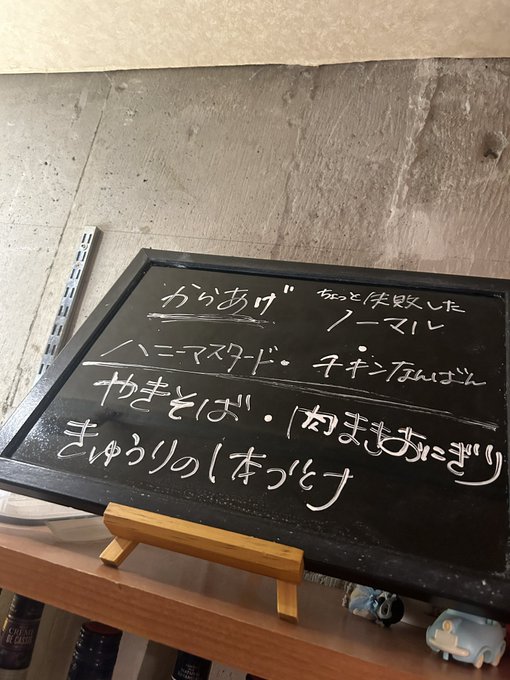 からあげ ちょっと失敗した
ノーマル
ハニーマスタード・チキンなんばん
やきそば・肉まきおにぎり
きゅうりの1本づけ
CRÈME
DE CASSIS